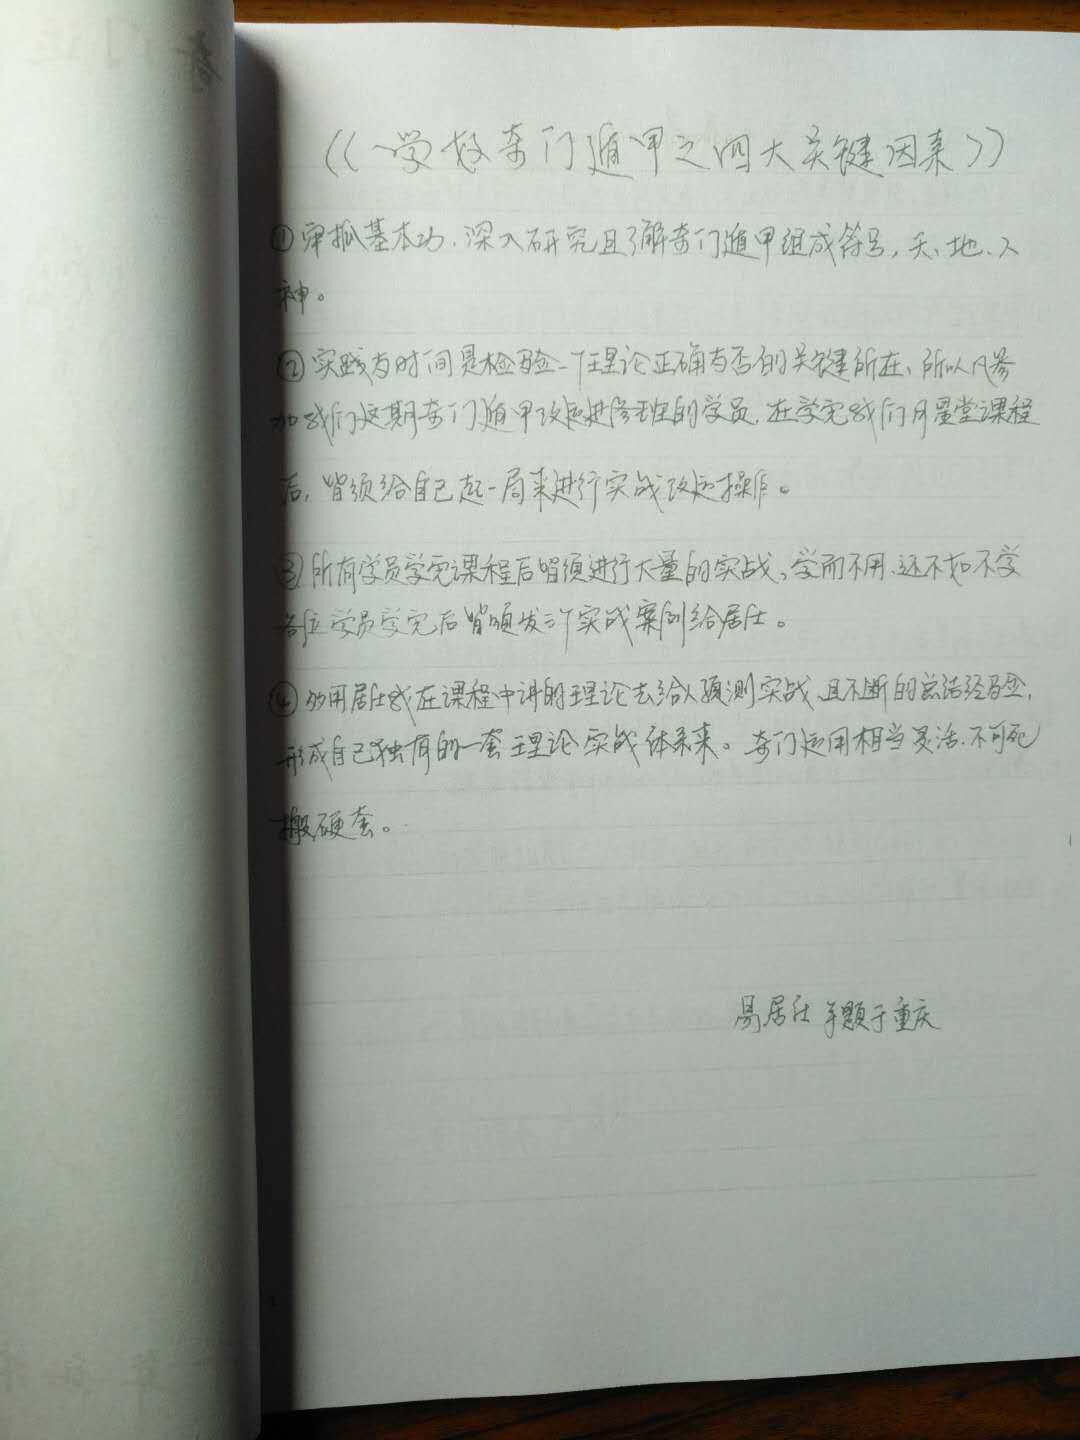 《学好奇门遁甲之四大关键因素》
①牢抓基本功,深入研究且了解奇门遁甲组成符号,天、地、人
神。
②实践与时间是检验一个理论正确与否的关键所在,所以凡参
加我们这期奇门遁甲改运进修班的学员,在学完我们月星堂课程
后,皆须给自己起一局来进行实战改运操作。
③所有学员学完课程后皆须进行大量的实战,学而不用,还不如不学
各位学员学完后皆须发三个实战案例给居仕。
④多用居仕我在课程中讲的理论去给人预测实战,且不断的总结经验,
形成自己独有的一套理论实战体系来。奇门运用相当灵活,不可死
搬硬套。
易居仕 手题于重庆
奇门